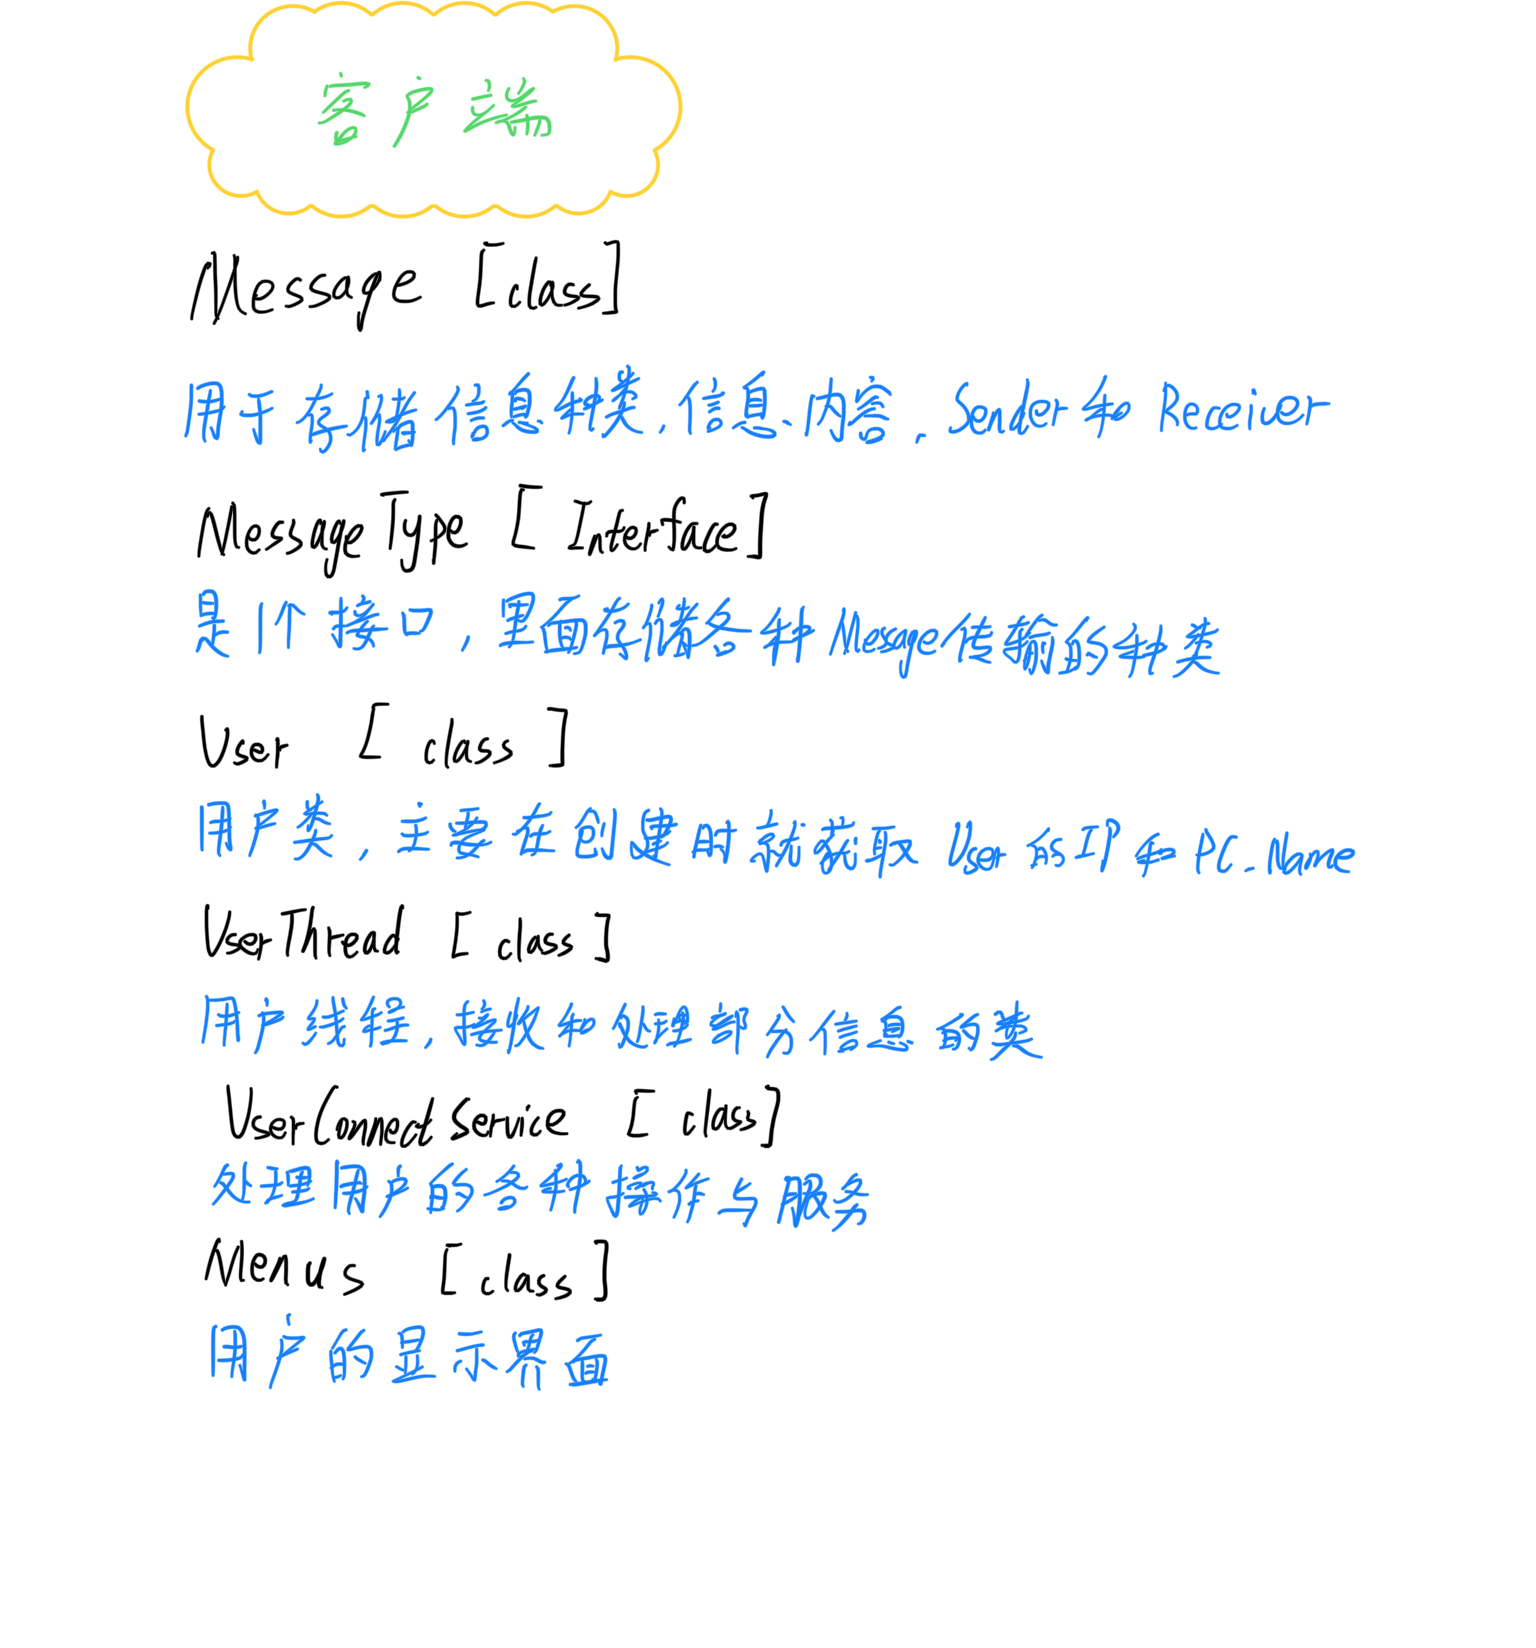 客户端
Message [class]
用于存储信息种类,信息、内容,Sender和 Receiver
MessageType [Interface]
是1个接口,里面存储各种Message传输的种类
User [class]
用户类,主要在创建时就获取 User的IP和PC_Name
UserThread [class]
用户线程,接收和处理部分信息的类
UserConnectService [class]
处理用户的各种操作与服务
Menus [class]
用户的显示界面